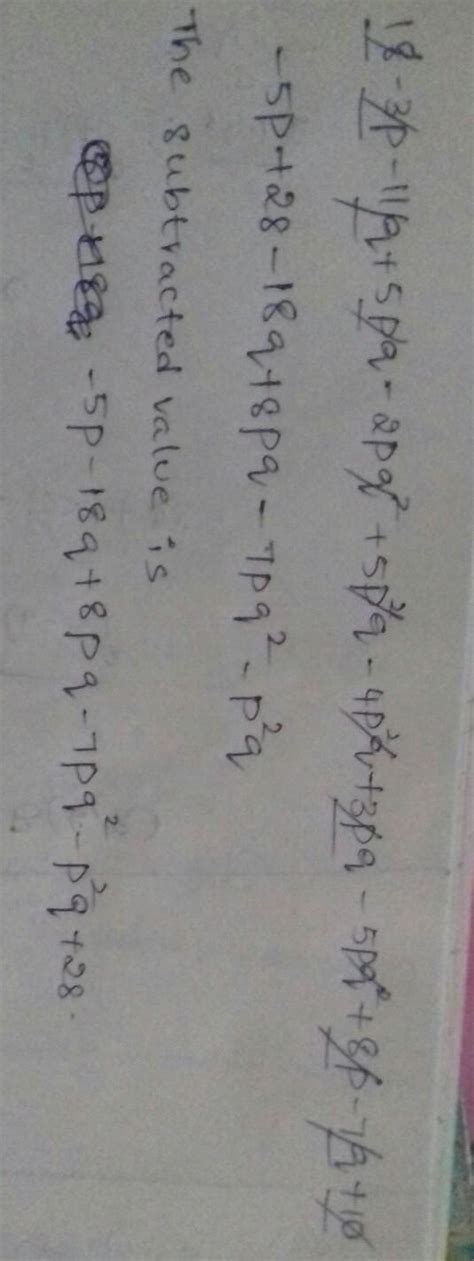 18 - 3p - 11q + 5pq - 2pq² + 5p²q - 4p²q + 3pq - 5pq² + 8p - 7q + 10
-5p + 28 - 18q + 8pq - 7pq² - p²q
The subtracted value is
-5p - 18q + 8pq - 7pq² - p²q + 28.